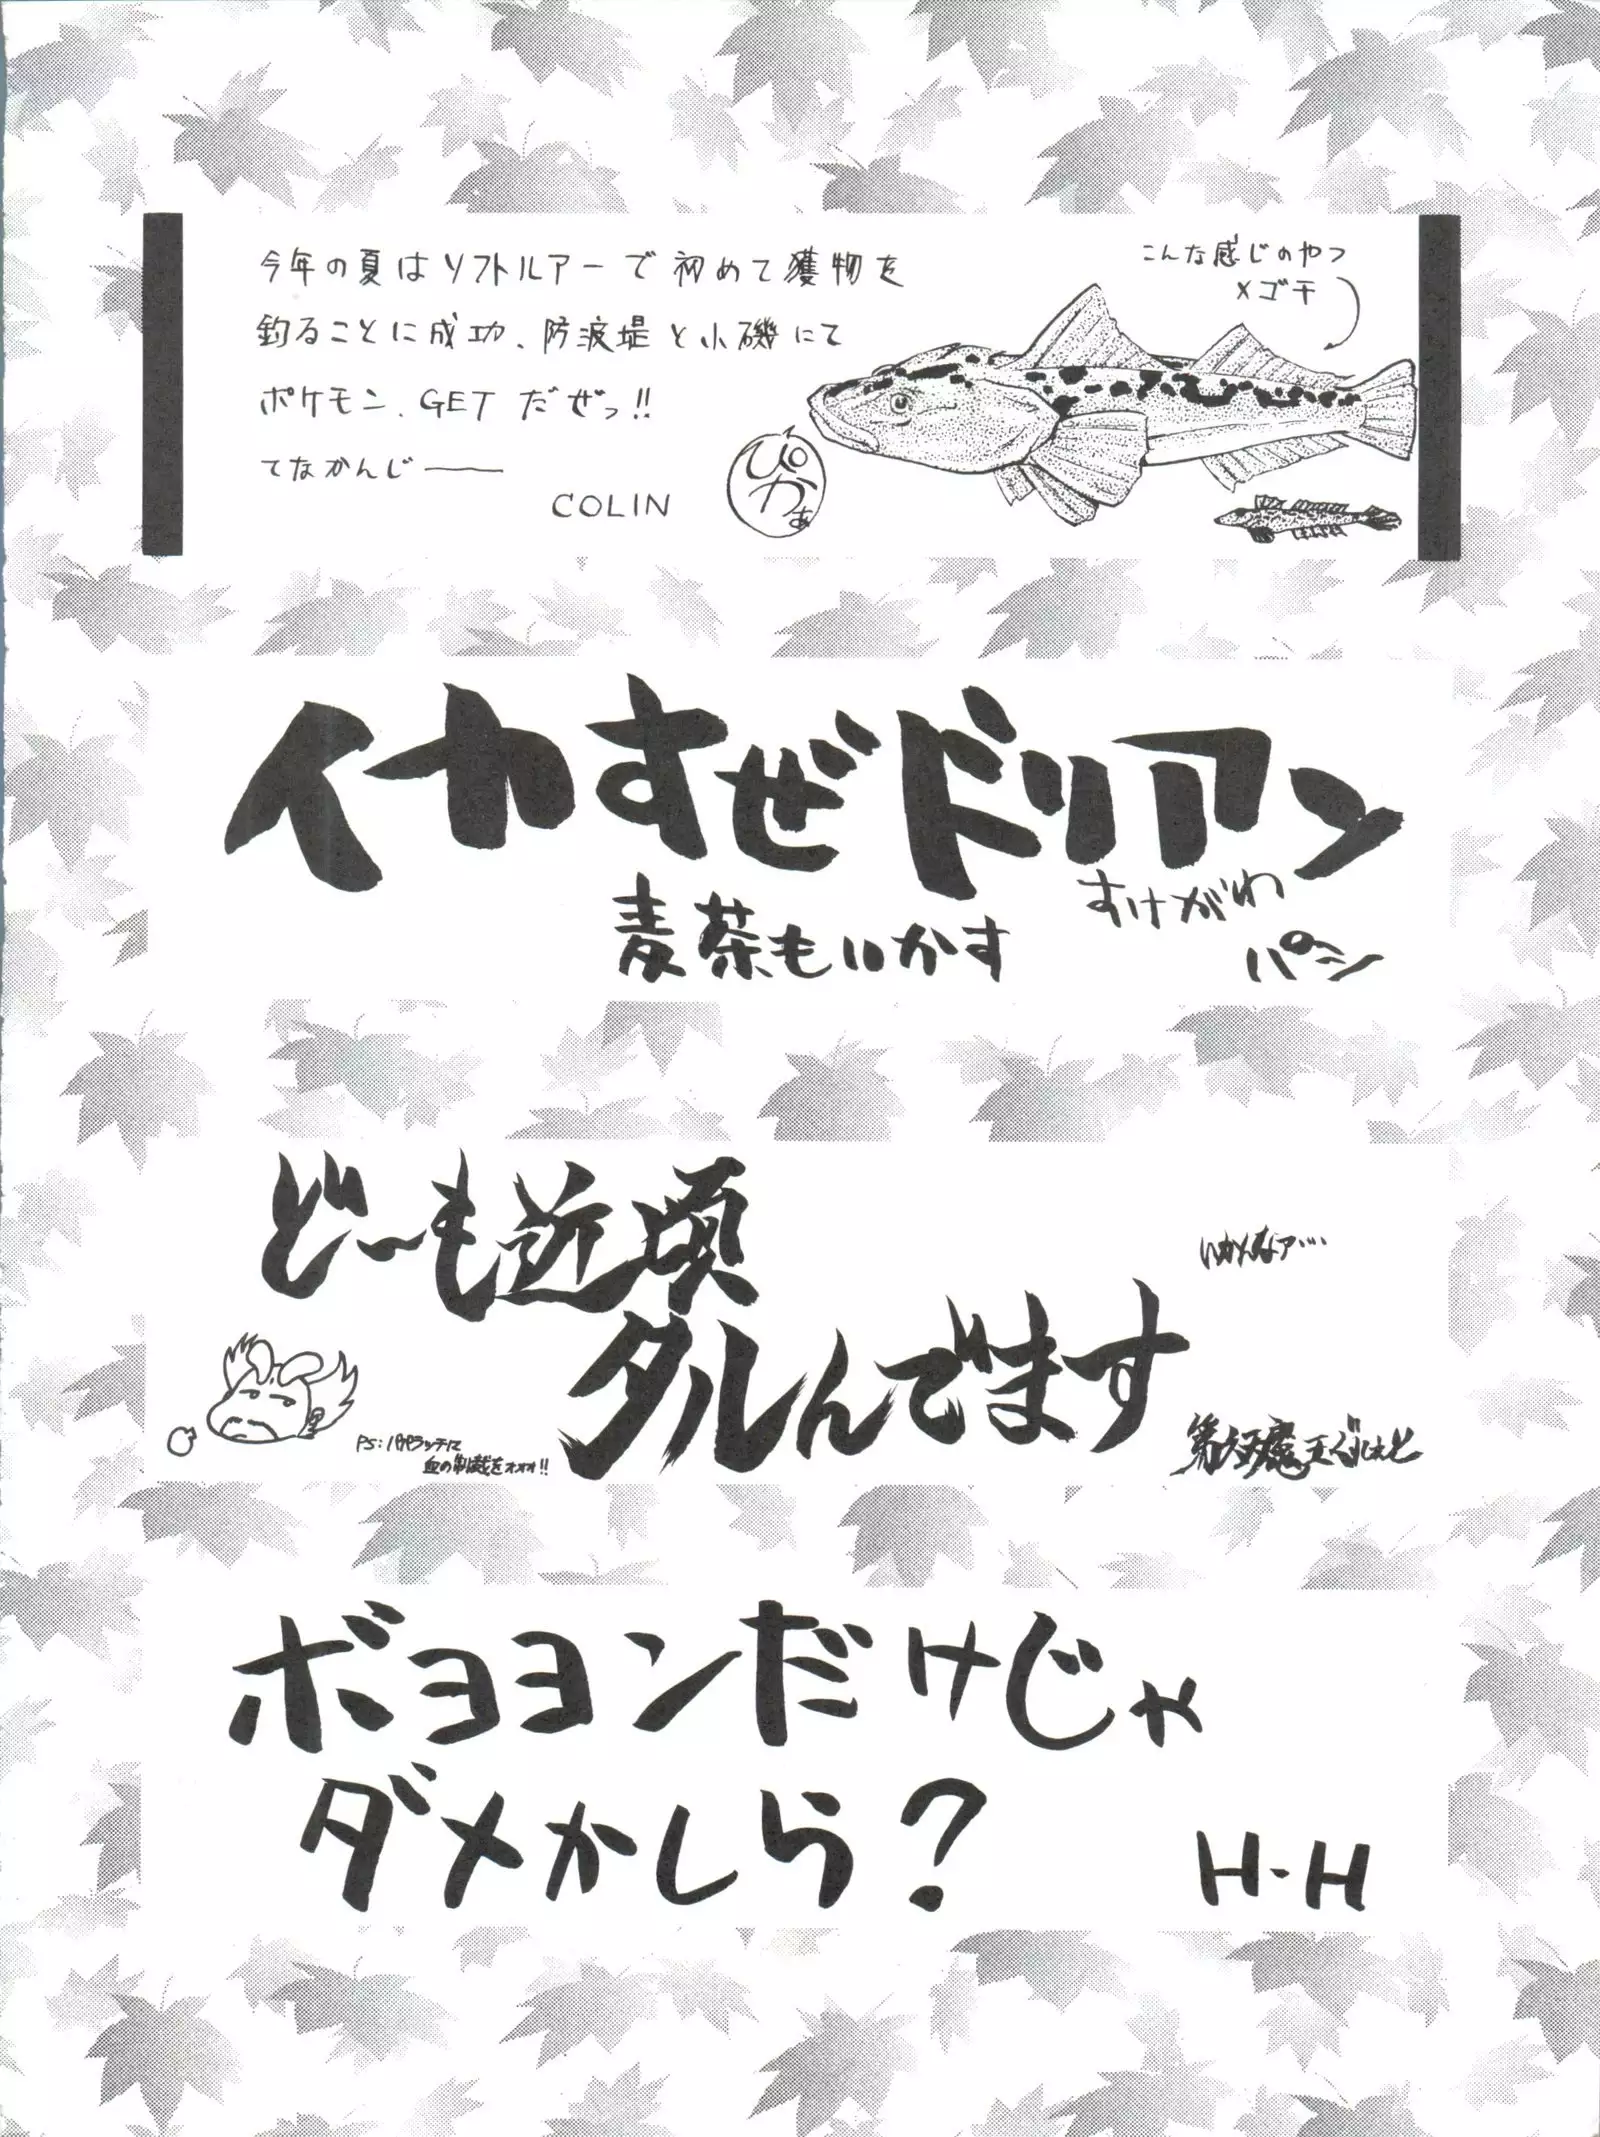 今年の夏はソフトルアーで初めて獲物を
釣ることに成功、防波堤と小磯にて
ポケモン、GETだぜっ!!
てなかんじ——
COLIN
ぴかぁ
こんな感じのやつ
メゴチ
イカすぜドリアン
麦茶もいかす
すけがわ
パン
どーも近頃
タルんでます
いかんなァ…
PS:パパラッチに
血の制裁をォォォ!!
第六天魔王ぐれえと
ボヨヨンだけじゃ
ダメかしら?
H・H